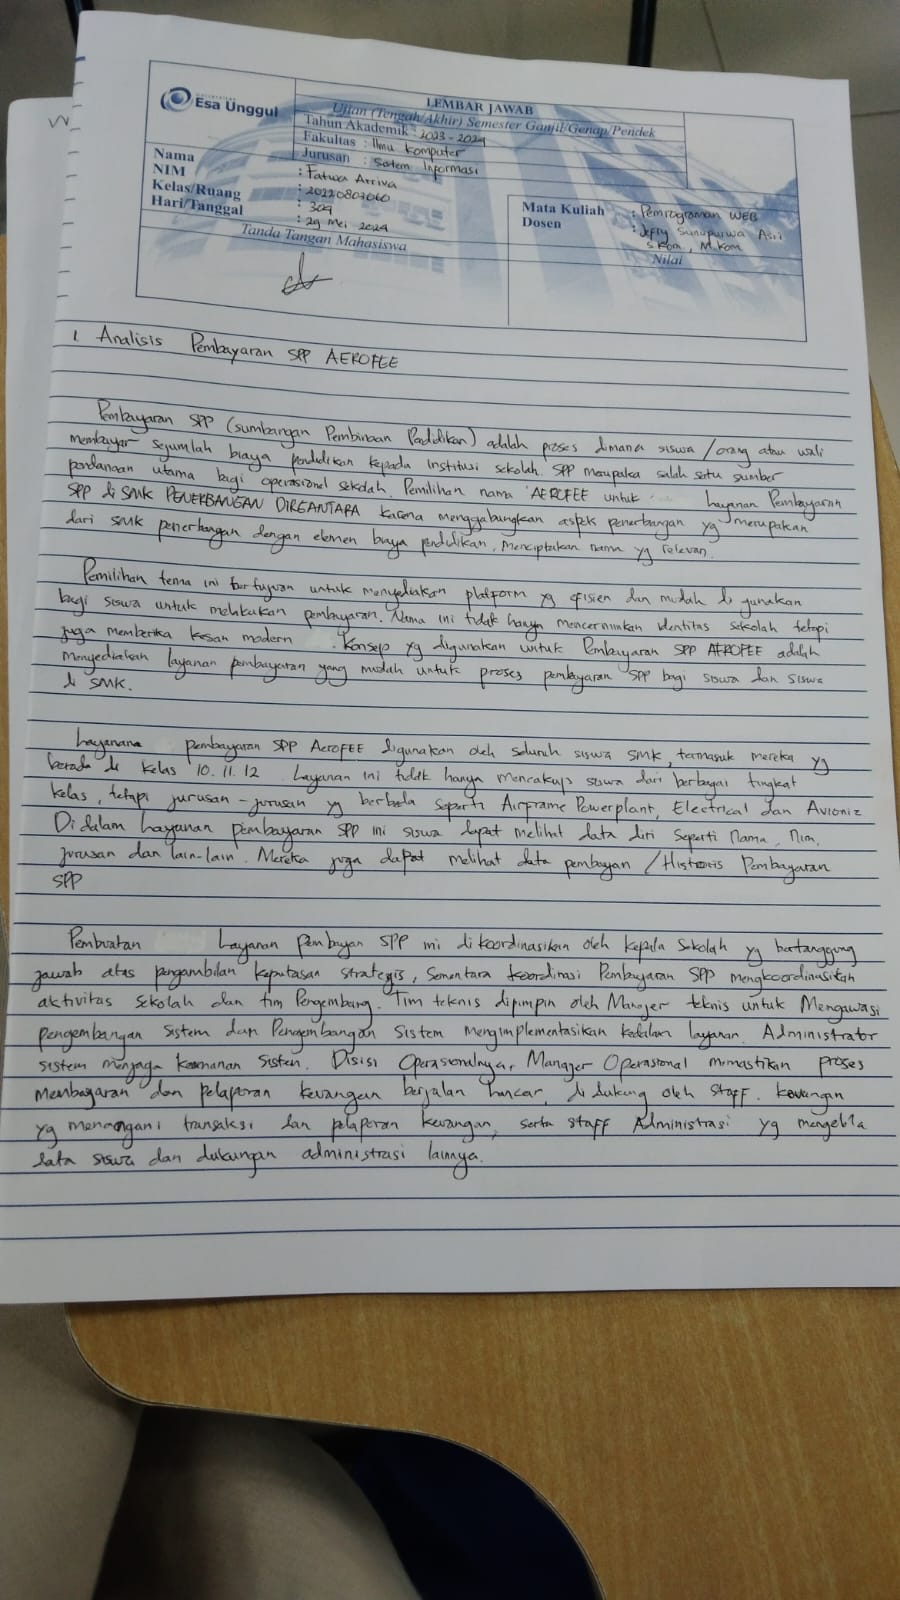 Universitas
Esa Unggul
LEMBAR JAWAB
Ujian (Tengah/Akhir) Semester Ganjil/Genap/Pendek
Tahun Akademik : 2023 - 2024
Fakultas : Ilmu Komputer
Jurusan : Sistem Informasi
Nama : Fatwa Arriva
NIM : 20220803060
Kelas/Ruang : 309
Hari/Tanggal : 29 Mei 2024
Tanda Tangan Mahasiswa
Mata Kuliah : Pemrograman WEB
Dosen : Jefry Sunupurwa Asri
S.Kom, M.Kom
Nilai
1. Analisis Pembayaran SPP AEROFEE
Pembayaran SPP (Sumbangan Pembinaan Pendidikan) adalah proses dimana siswa/orang atau wali
membayar sejumlah biaya pendidikan kepada institusi sekolah. SPP merupaka salah satu sumber
pendanaan utama bagi operasional sekolah. Pemilihan nama 'AEROFEE untuk layanan Pembayaran
SPP di SMK PENERBANGAN DIRGANTARA karena menggabungkan aspek penerbangan yg merupakan
dari smk penerbangan dengan elemen biaya pendidikan, menciptakan nama yg relevan.
Pemilihan tema ini bertujuan untuk menyediakan platform yg efisien dan mudah di gunakan
bagi siswa untuk melakukan pembayaran. Nama ini tidak hanya mencerminkan identitas sekolah tetapi
juga memberika kesan modern. Konsep yg digunakan untuk Pembayaran SPP AEROFEE adalah
menyediakan layanan pembayaran yang mudah untuk proses pembayaran SPP bagi siswa dan siswa
di SMK.
Layanana pembayaran SPP AeroFEE digunakan oleh seluruh siswa SMK, termasuk mereka yg
berada di kelas 10. 11. 12 Layanan ini tidak hanya mencakup siswa dari berbagai tingkat
kelas, tetapi jurusan-jurusan yg berbeda seperti Airframe Powerplant, Electrical dan Avioniz
Di dalam Layanan pembayaran SPP ini siswa dapat melihat data diri seperti nama, Nim,
jurusan dan lain-lain. Mereka juga dapat melihat data pembayan / Historis Pembayaran
SPP
Pembuatan Layanan pembayan SPP ini di koordinasikan oleh kepala sekolah yg bertanggung
jawab atas pengambilan keputasan strategis, Sementara koordinasi Pembayaran SPP mengkoordinasikan
aktivitas sekolah dan tim Pengembang. Tim teknis dipimpin oleh Manajer teknis untuk Mengawasi
pengembangan sistem dan Pengembangan Sistem mengimplementasikan kedalam layanan. Administrator
sistem menjaga keamanan Sistem. Disisi Operasionalnya, Manager Operasional memastikan proses
Membayaran dan pelaporan keuangan berjalan lancar, di dukung oleh staff. keuangan
yg menangani transaksi dan pelaporan keuangan, serta staff Administrasi yg mengelola
data siswa dan dukungan administrasi lainnya.